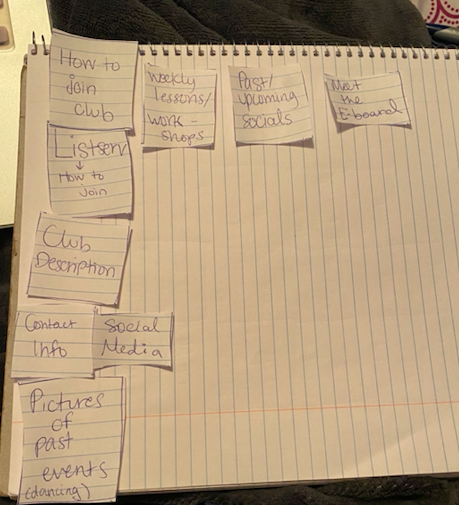 How to
join
club
Weekly
lessons/
work-
shops
Past/
upcoming
socials
Meet
the
E-board
Listserv
How to
join
Club
Description
Contact
Info
Social
Media
Pictures
of
past
events
(dancing)